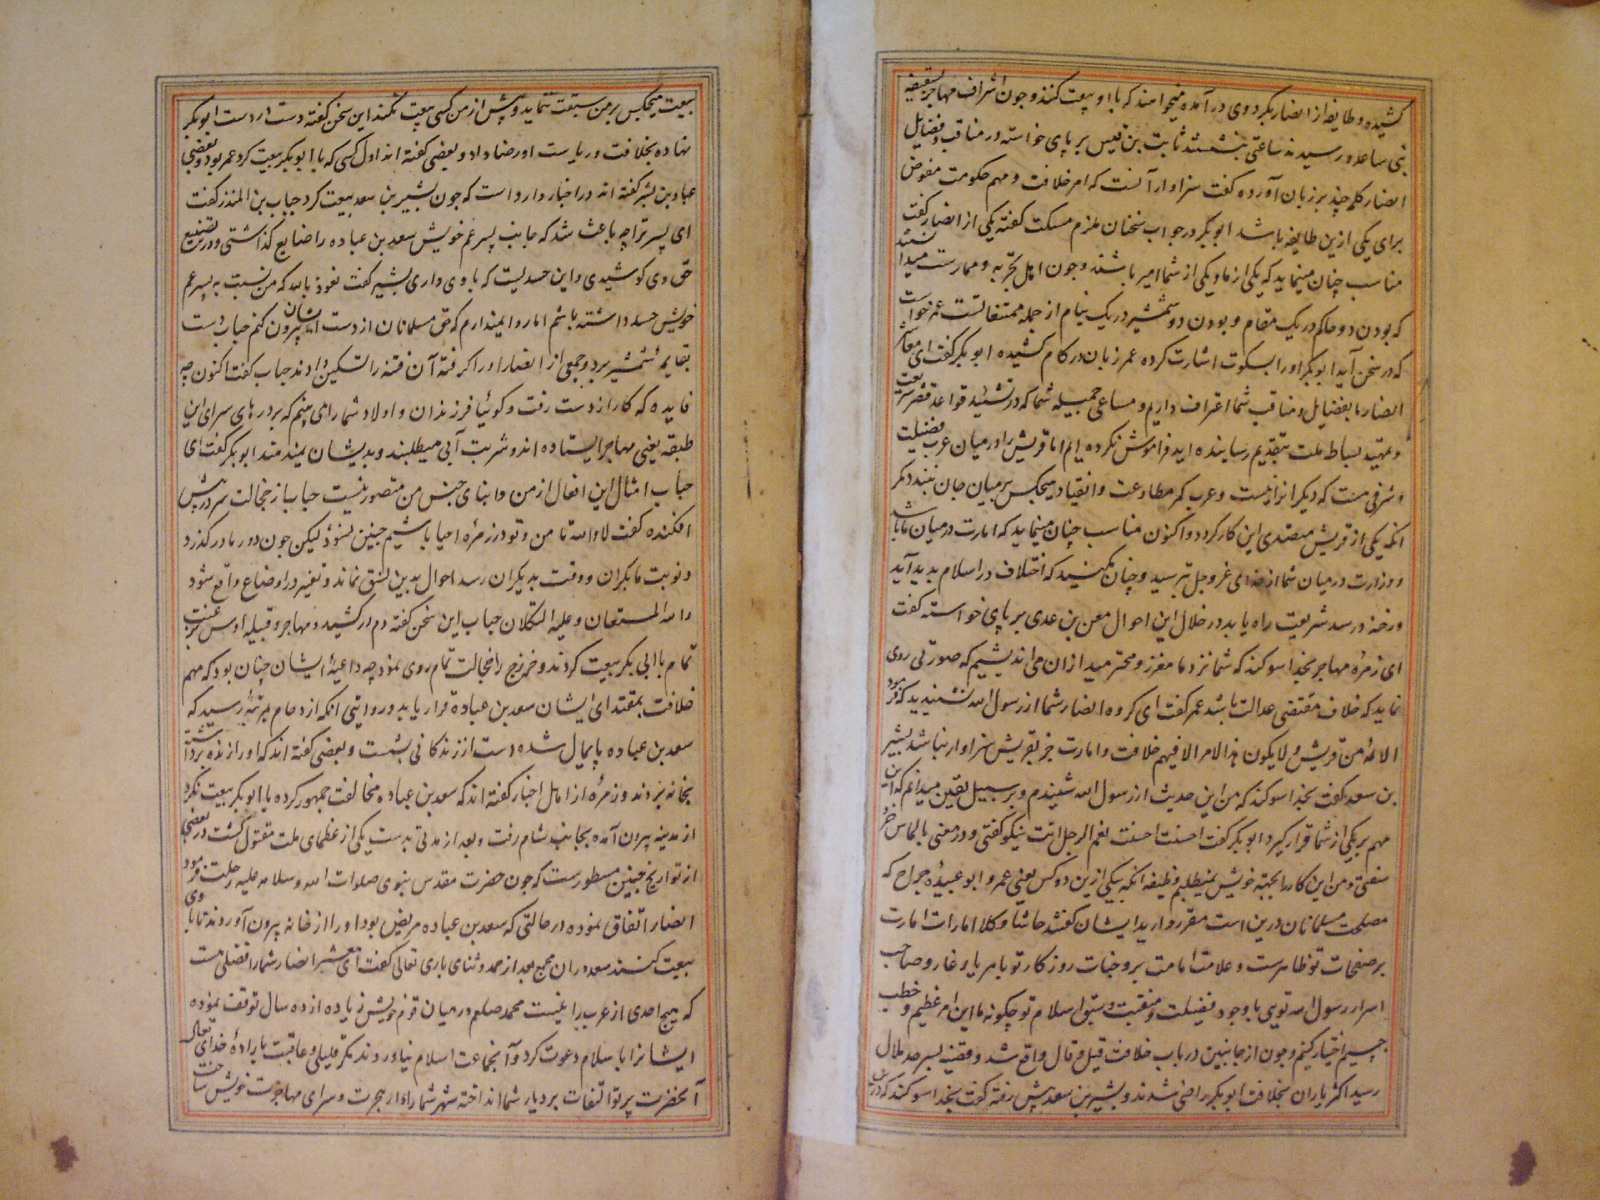 کشیده و طایفه از انصار بکرد وی در آمده میخواهند که با او بیعت کنند و چون اشراف مهاجر بسقیفه
بنی ساعده رسیدند ساعتی بنشستند ثابت بن قیس بر پای خواسته در مناقب و فضایل
انصار کلمه چند بر زبان آورده گفت سزاوار آنست که امر خلافت و مهم حکومت مفوض
برای یکی ازین طایفه باشد ابوبکر در جواب سخنان ملزم مسکت گفته یکی از انصار گفت
مناسب چنان مینماید که یکی از ما و یکی از شما امیر باشند و چون اهل تجربه و ممارست میدانستند
که بودن دو حاکم در یک مقام و بودن دو شمشیر در یک نیام از جمله ممتنعاتست عمر خواست
که در سخن آید ابوبکر او را بسکوت اشارت کرده عمر زبان در کام کشیده ابوبکر گفت ای معاشر
انصار ما بفضایل و مناقب شما اعتراف داریم و مساعی جمیله شما که در تشیید قواعد قصر شریعت
و تمهید بساط ملت بتقدیم رسانیده اید فراموش نکرده ایم اما قریش را در میان عرب فضیلت
و شرفی هست که دیگرانرا نیست و عرب کمر مطاوعت و انقیاد هیچکس بر میان جان نبندد مگر
آنکه یکی از قریش متصدی این کار گردد و اکنون مناسب چنان مینماید که امارت در میان ما باشد
و وزارت در میان شما از خدای عز و جل بترسید و چنان مکنید که اختلاف در اسلام پدید آید
و رخنه در سد شریعت راه یابد در خلال این احوال معن بن عدی بر پای خواسته گفت
ای زمره مهاجر بخدا سوکند که شما نزد ما معزز و محترمید ازان می اندیشیم که صورتی روی
نماید که خلاف مقتضی عدالت باشد عمر گفت ای کروه انصار شما از رسول الله نشنیدید که فرمود
الائمة من قریش و لا یکون هذا الامر الا فیهم خلافت و امارت جز بقریش سزاوار نباشد بشیر
بن سعد گفت بخدا سوکند که من این حدیث از رسول الله شنیدم و بر سبیل یقین میدانم که این
مهم بر یکی از شما قرار گیرد ابوبکر گفت احسنت احسنت نعم الرجل انت نیکو گفتی و در معنی بالماس خرد
سفتی و من این کار را بجهة خویش نمیطلبم وظیفه آنکه بیکی ازین دو کس یعنی عمر و ابو عبیده جراح که
مصلحت مسلمانان درین است مقرر دارید ایشان گفتند حاشا و کلا امارات امارت
بر صفحات تو ظاهرست و علامت امامت بر وجنات روزکار تو باهر یار غار و صاحب
اسرار رسول الله تویی با وجود فضیلت و منقبت و سبق اسلام تو چکونه ما این امر عظیم و خطب
جسیم اختیار کنیم و چون از جانبین در باب خلافت قیل و قال واقع شد و قضیه بسر حد ملال
رسید اکثر یاران بخلافت ابوبکر راضی شدند و بشیر بن سعد پیش رفته گفت بخدا سوکند که درین
بیعت هیچکس بر من سبقت ننماید و پیش از من کسی بیعت نکند این سخن گفته دست در دست ابوبکر
نهاده بخلافت و ریاست او رضا داد و بعضی گفته اند اول کسی که با ابوبکر بیعت کرد عمر بود و بعضی
عباد بن بشر گفته اند در اخبار وارد است که چون بشیر بن سعد بیعت کرد حباب بن المنذر گفت
ای بشیر ترا چه باعث شد که جانب پسر عم خویش سعد بن عباده را ضایع گذاشتی و در تضییع
حق وی کوشیدی و این حسدیست که با وی داری بشیر گفت نعوذ بالله که من نسبت به پسر عم
خویش حسد داشته باشم اما روا نمیدارم که حق مسلمانان از دست ایشان بیرون کنم حباب دست
بقایمه شمشیر برد و جمعی از انصار او را گرفته آن فتنه را تسکین دادند حباب گفت اکنون چه
فایده که کار از دست رفت و گوئیا فرزندان و اولاد شما را می بینم که بر درهای سرای این
طبقه یعنی مهاجر ایستاده اند و شربت آبی میطلبند و بدیشان نمیدهند ابوبکر گفت ای
حباب امثال این افعال از من و ابنای جنس من متصور نیست حباب از خجالت سر در پیش
افکنده گفت لا والله تا من و تو در زمره احیا باشیم چنین نشود لیکن چون دور ما در گذرد
و نوبت ما بگران و وقت بدیگران رسد احوال بدین نسق نماند و تغییر در اوضاع واقع شود
والله المستعان و علیه التکلان حباب این سخن گفته دم در کشید و مهاجر و قبیله اوس برغبت
تمام با ابی بکر بیعت کردند و خزرج را خجالت تمام روی نمود چه داعیه ایشان چنان بود که مهم
خلافت بمقتدای ایشان سعد بن عباده قرار یابد و روایتی آنکه ازدحام بمرتبه رسید که
سعد بن عباده پایمال شده دست از زندگانی بشست و بعضی گفته اند که او را زنده برداشته
بخانه بردند و زمره از اهل اخبار گفته اند که سعد بن عباده مخالفت جمهور کرده با ابوبکر بیعت نکرد
از مدینه بیرون آمده بجانب شام رفت و بعد از مدتی بدست یکی از عظمای ملت مقتول گشت در بعضی
از تواریخ چنین مسطورست که چون حضرت مقدس نبوی صلوات الله و سلامه علیه رحلت فرمود
انصار اتفاق نموده در حالتی که سعد بن عباده مریض بود او را از خانه بیرون آوردند تا با وی
بیعت کنند سعد دران مجمع بعد از حمد و ثنای باری تعالی گفت ای معشر انصار شما را فضلی هست
که هیچ احدی از عرب را نیست محمد صلعم در میان قوم خویش زیاده از ده سال توقف نموده
ایشانرا باسلام دعوت کرد و آن جماعت اسلام نیاوردند مکر قلیلی و عاقبت باراده خدای تعالی
آنحضرت پرتو التفات بر دیار شما انداخته شهر شما را دار هجرت و سرای مهاجرت خویش ساخت